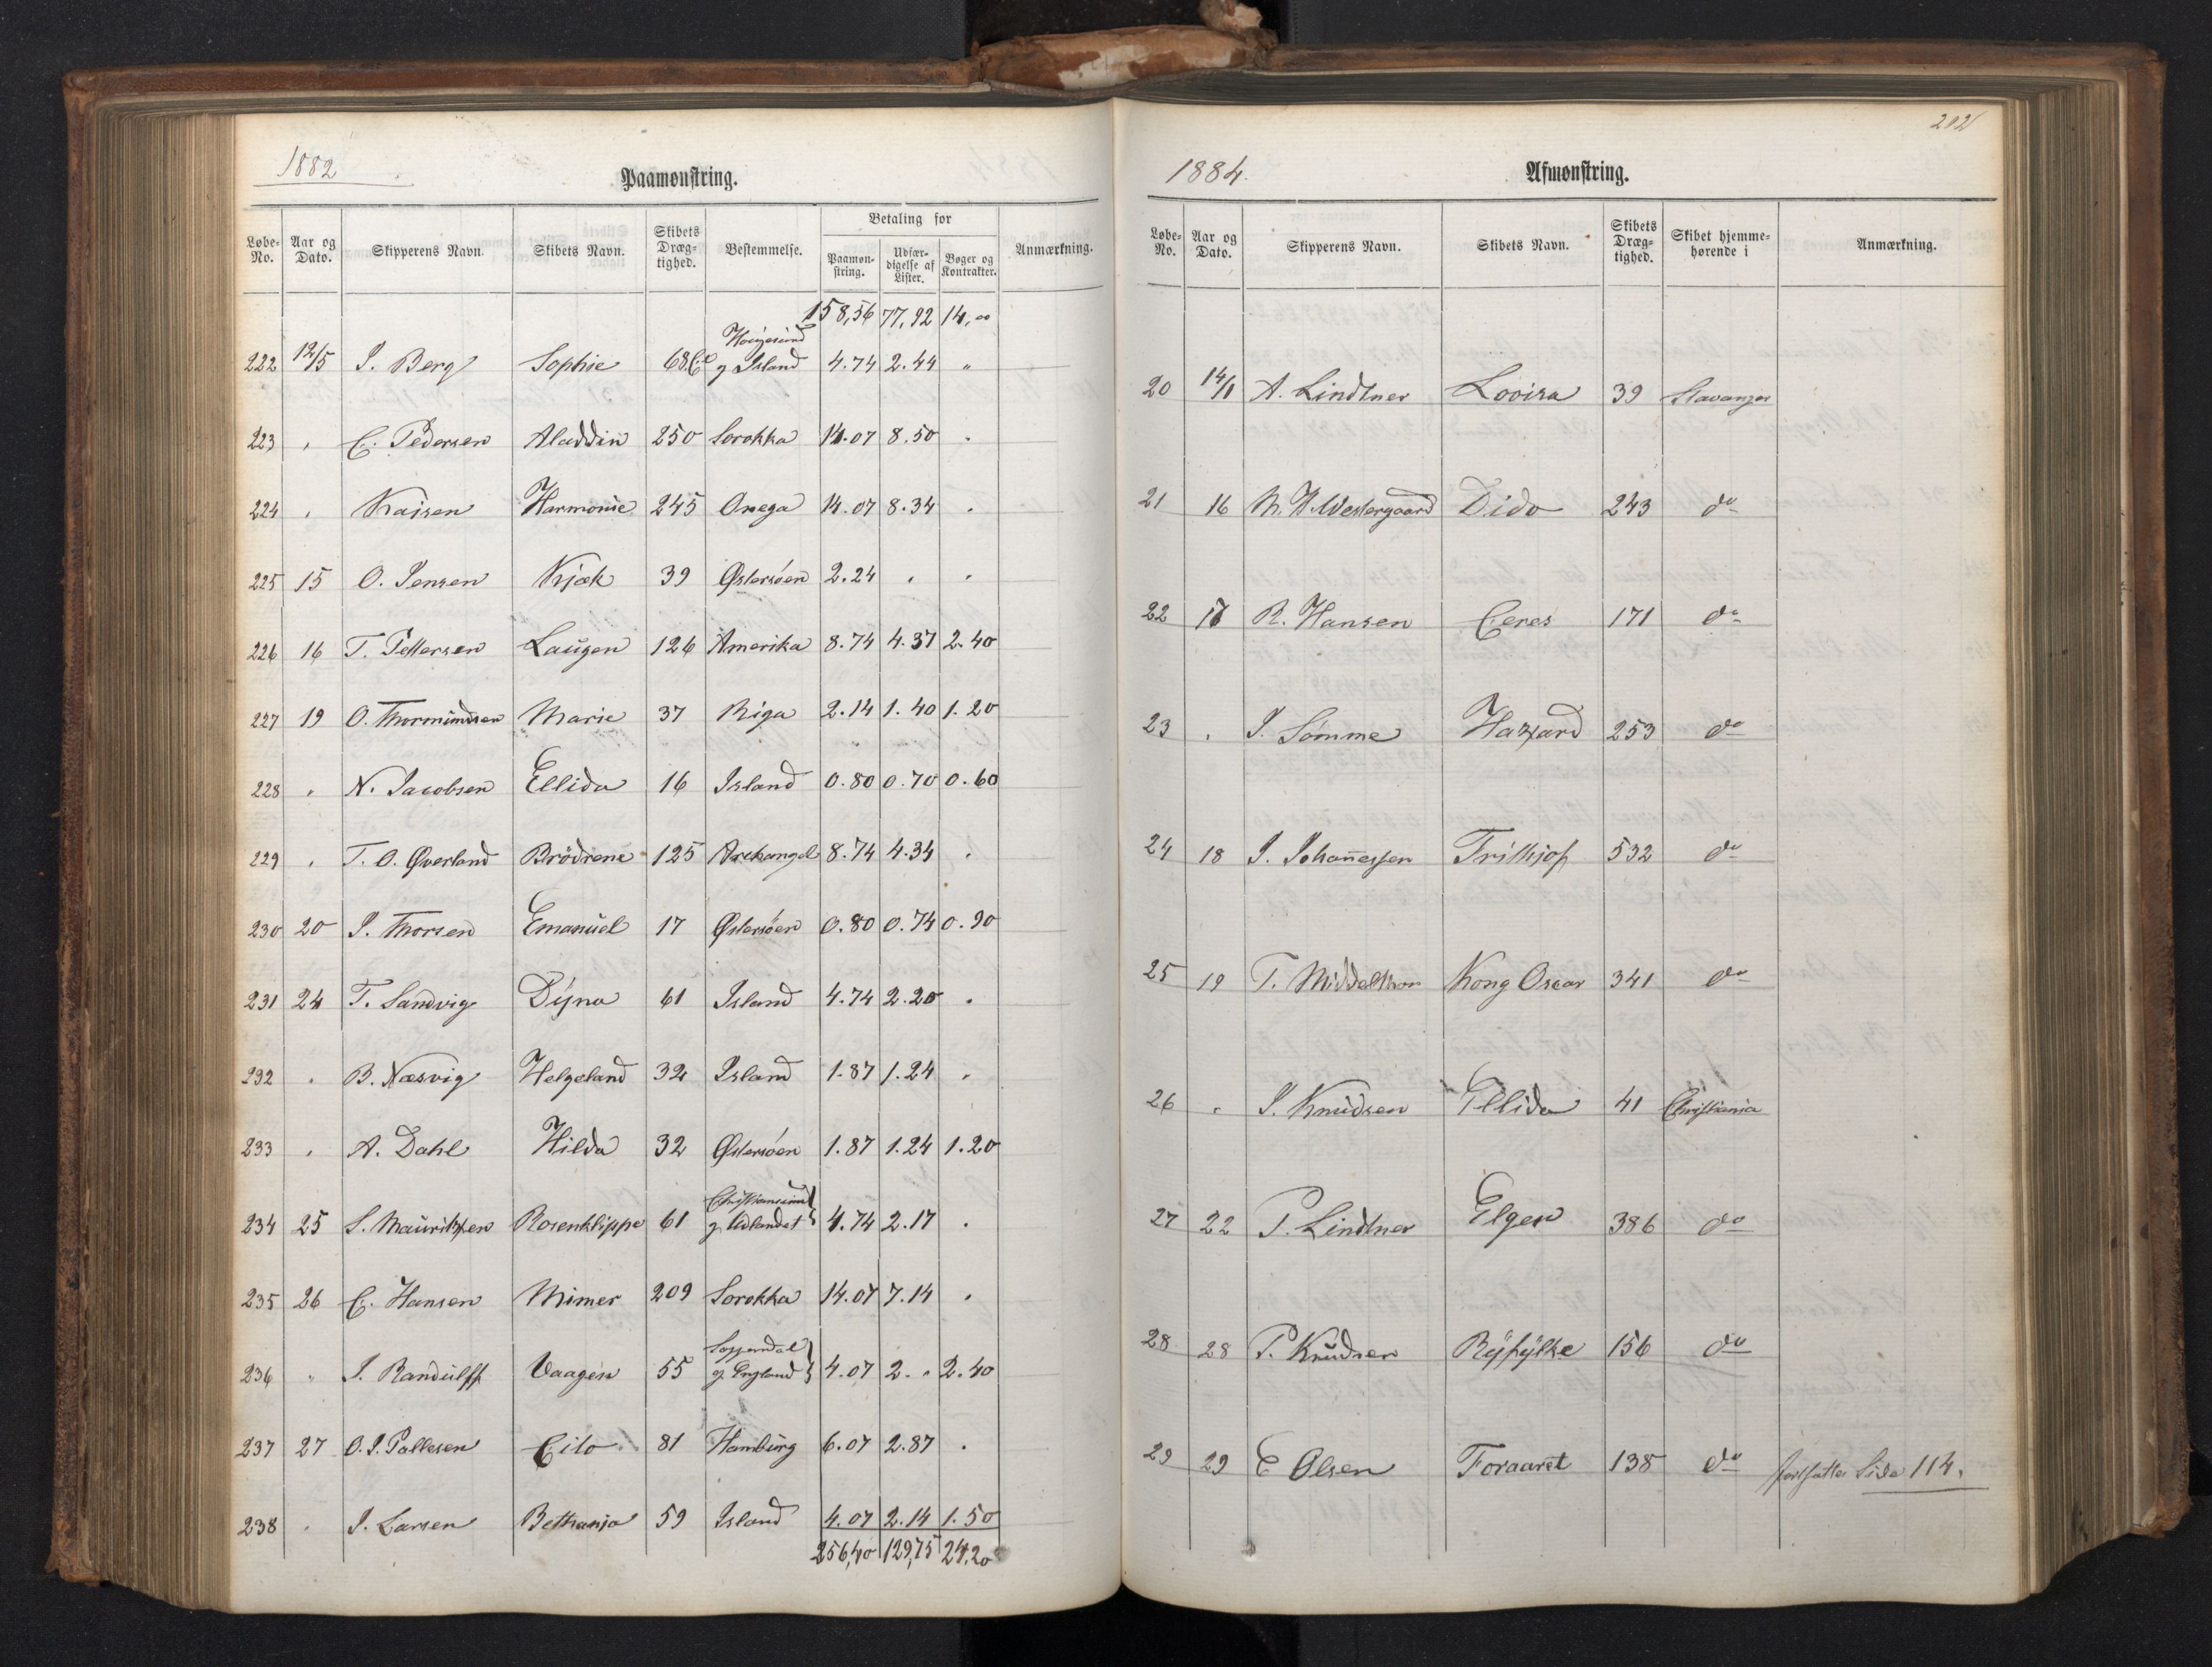 1882
Paamønstring.
Løbe-No. Aar og Dato. Skipperens Navn. Skibets Navn. Skibets Dræg-tighed. Bestemmelse. Betaling for Paamøn-string. Udfær-digelse af Lister. Bøger og Kontrakter. Anmærkning.
158,56 77,92 14,00
222 12/5 I. Berg Sophie 68 Island 4.74 2.44 "
223 " C. Pedersen Aladdin 250 Sorokka 14.07 8.50 "
224 " Kaisen Harmonie 245 Onega 14.07 8.34 "
225 15 O. Jensen Kjæk 39 Østersøen 2.24 " "
226 16 T. Pettersen Laugen 126 Amerika 8.74 4.37 2.40
227 19 O. Thormundsen Marie 37 Riga 2.14 1.40 1.20
228 " N. Jacobsen Ellida 16 Island 0.80 0.70 0.60
229 " T. O. Øverland Brødrene 125 Archangel 8.74 4.34 "
230 20 I. Thorsen Emanuel 17 Østersøen 0.80 0.74 0.90
231 24 T. Sandvig Dyna 61 Island 4.74 2.20 "
232 " B. Næsvig Helgeland 32 Island 1.87 1.24 "
233 " A. Dahl Hilda 32 Østersøen 1.87 1.24 1.20
234 25 S. Mauritzen Rosenklippe 61 Christiansund g. Udlandet 4.74 2.17 "
235 26 C. Hansen Mimer 209 Sorokka 14.07 7.14 "
236 " I. Randulff Vaagen 55 g. England 4.07 2. " 2.40
237 27 O. I. Pallesen Cito 81 Hamburg 6.07 2.87 "
238 " I. Larsen Bethania 59 Island 4.07 2.14 1.50
256,40 129,75 24,20
202
1884.
Afmønstring.
Løbe-No. Aar og Dato. Skipperens Navn. Skibets Navn. Skibets Dræg-tighed. Skibet hjemme-hørende i Anmærkning.
20 14/1 A. Lindtner Lovisa 39 Stavanger
21 16 N. H. Westergaard Dido 243 do
22 17 R. Hansen Ceres 171 do
23 " I. Sømme Hazard 253 do
24 18 I. Johannessen Frithjof 532 do
25 19 T. Middelthon Kong Oscar 341 do
26 " I. Knudsen Ellida 41 Christiania
27 22 P. Lindtner Elgen 386 do
28 28 P. Knudsen Ryfylke 156 do
29 29 E Olsen Foraaret 138 do fortsættes Side 114.